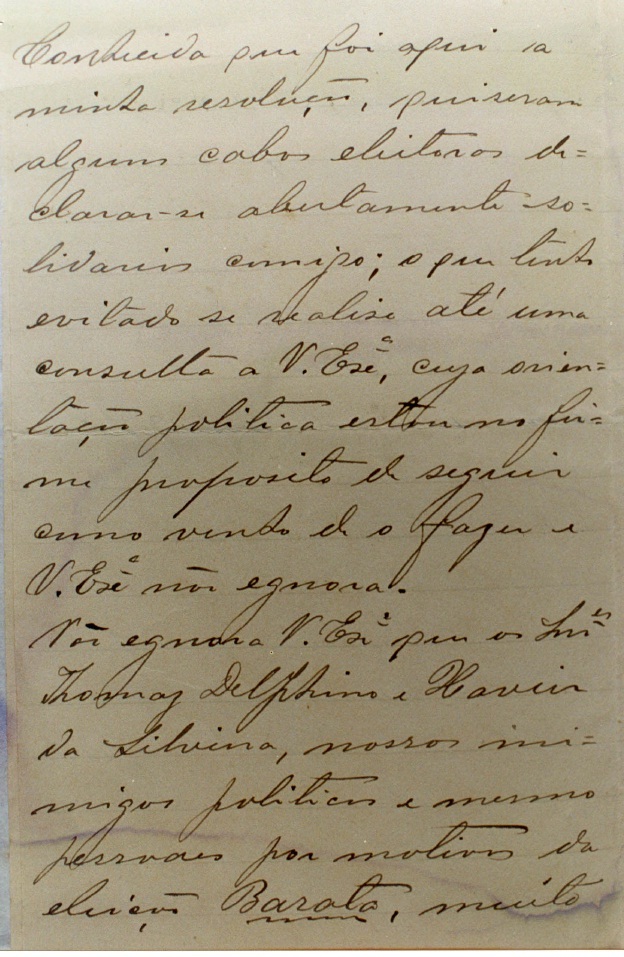 Conhecida que foi aqui a
minha resolução, quiseram
alguns cabos eleitoraes de=
clarar-se abertamente so=
lidarios comigo; o que tenho
evitado se realise até uma
consulta a V. Exª, cuja orien=
tação politica estou no fir=
me proposito de seguir
como venho de o fazer e
V. Exª não egnora.
Não egnora V. Exª que os Snrs
Thomaz Delphino e Xavier
da Silvina, nossos ini=
migos politicos e mesmo
pessoaes por motivos da
eleição Barata, muito